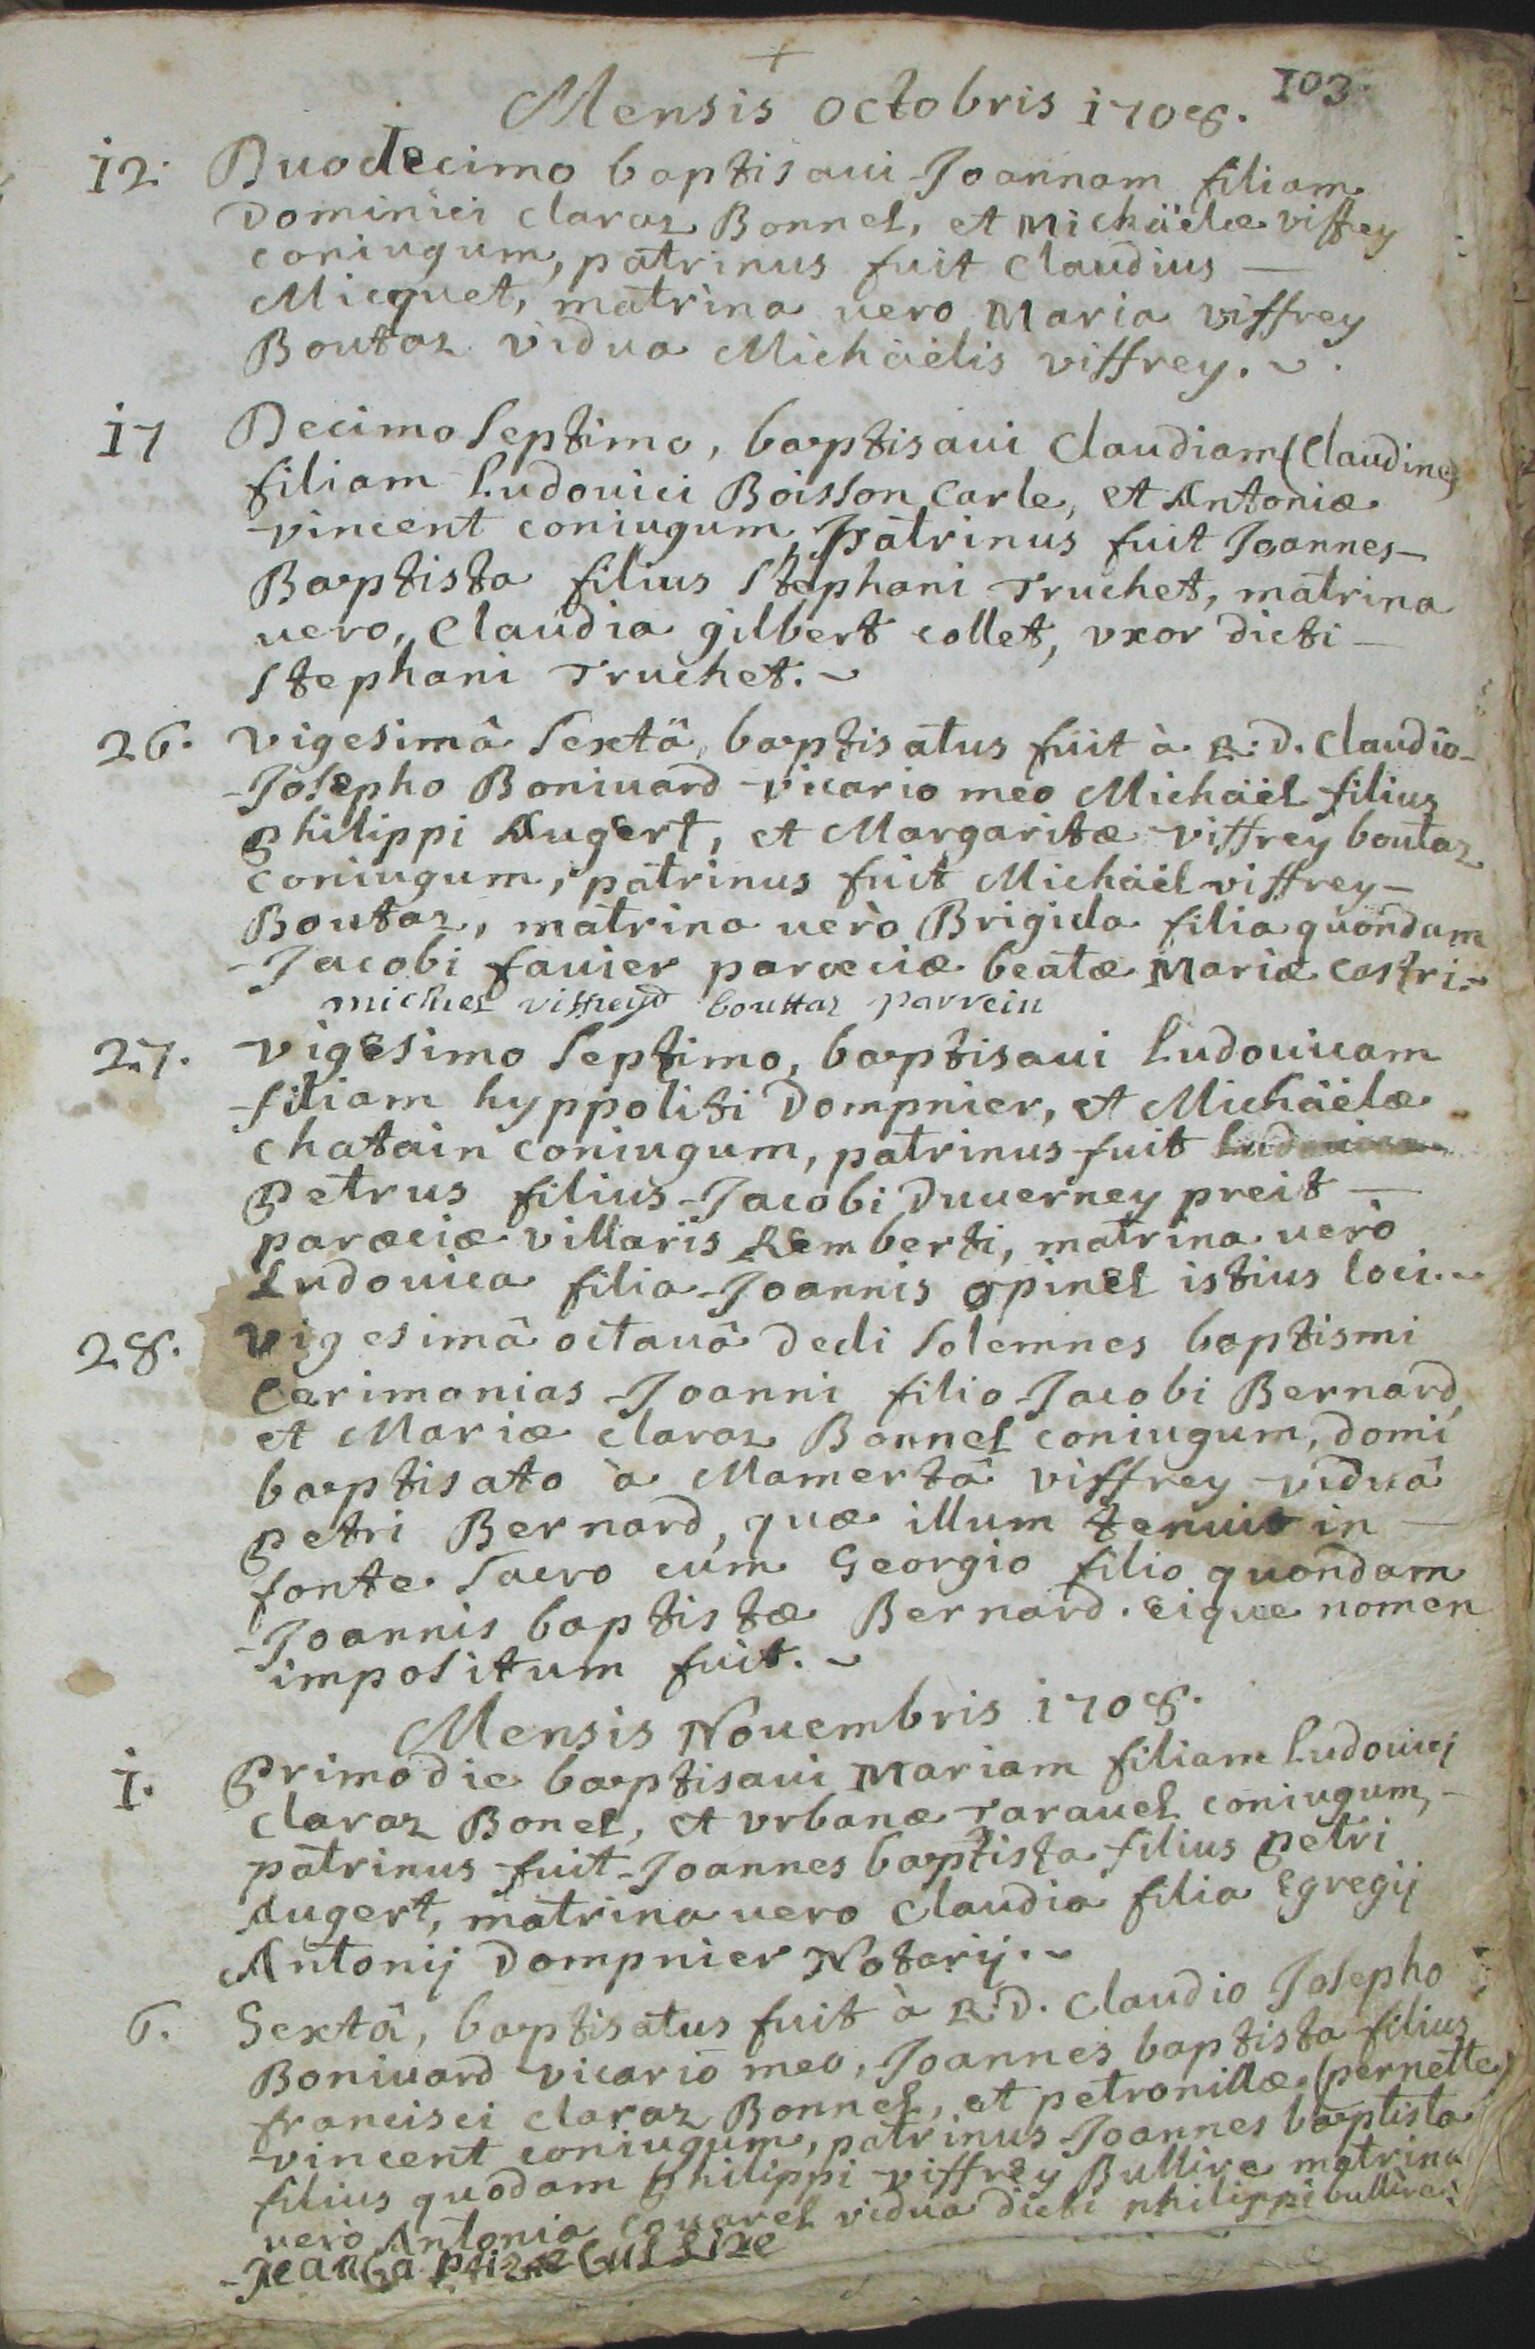 103.
Mensis octobris 1708.
12. Duodecimo baptisaui Joannam filiam
Dominici claraz Bonnel, et Michäelæ viffrey
coniugum, patrinus fuit Claudius —
Micquet, matrina uero Maria viffrey
Boutaz vidua Michäelis viffrey.
17 Decimo septimo, baptisaui Claudiam (Claudine)
filiam Ludouici Boisson Carle, et Antoniæ
vincent coniugum, patrinus fuit Joannes-
Baptista filius Stephani Truchet, matrina
uero, Claudia gilbert collet, vxor dicti —
Stephani Truchet.
26. vigesimâ sextâ, baptisatus fuit à R: D. Claudio-
Josepho Boniuard vicario meo Michäel filius
Philippi Augert, et Margaritæ viffrey boutaz
coniugum, patrinus fuit Michäel viffrey-
Boutaz, matrina uerò Brigida filia quondam
Jacobi fauier parœciæ beatæ Mariæ castri.
michel viffreyd bouttaz parrein
27. vigesimo septimo, baptisaui Ludouicam
filiam hyppoliti Dompnier, et Michäelæ
chatain coniugum, patrinus fuit
Petrus filius Jacobi Duuerney preit —
parœciæ villariis Remberti, matrina uerò
Ludouica filia Joannis opinel istius loci.
28. vigesimâ octauâ dedi solemnes baptismi
cerimonias Joanni filio Jacobi Bernard,
et Mariæ claraz Bonnel coniugum, domi
baptisato à Mamertâ viffrey viduâ
petri Bernard, quæ illum tenuit in —
fonte sacro cum Georgio filio quondam
Joannis baptistæ Bernard. eique nomen
impositum fuit.
Mensis Nouembris 1708.
1. Primo die baptisaui Mariam filiam Ludouicj
claraz Bonel, et vrbanæ Tarauel coniugum,-
patrinus fuit Joannes baptista filius petri
Augert, matrina uero Claudia filia Egregij
Antonij Dompnier Notarij.
6. Sextâ, baptisatus fuit à R: D. Claudio Josepho
Boniuard vicario meo, Joannes baptista filius
francisci claraz Bonnel, et petronillæ (pernette)
vincent coniugum, patrinus Joannes baptista
filius quodam Philippi viffrey Bullire matrina
uerò Antonia couarel vidua dicti philippi bullire.
Jean baptiste bullire